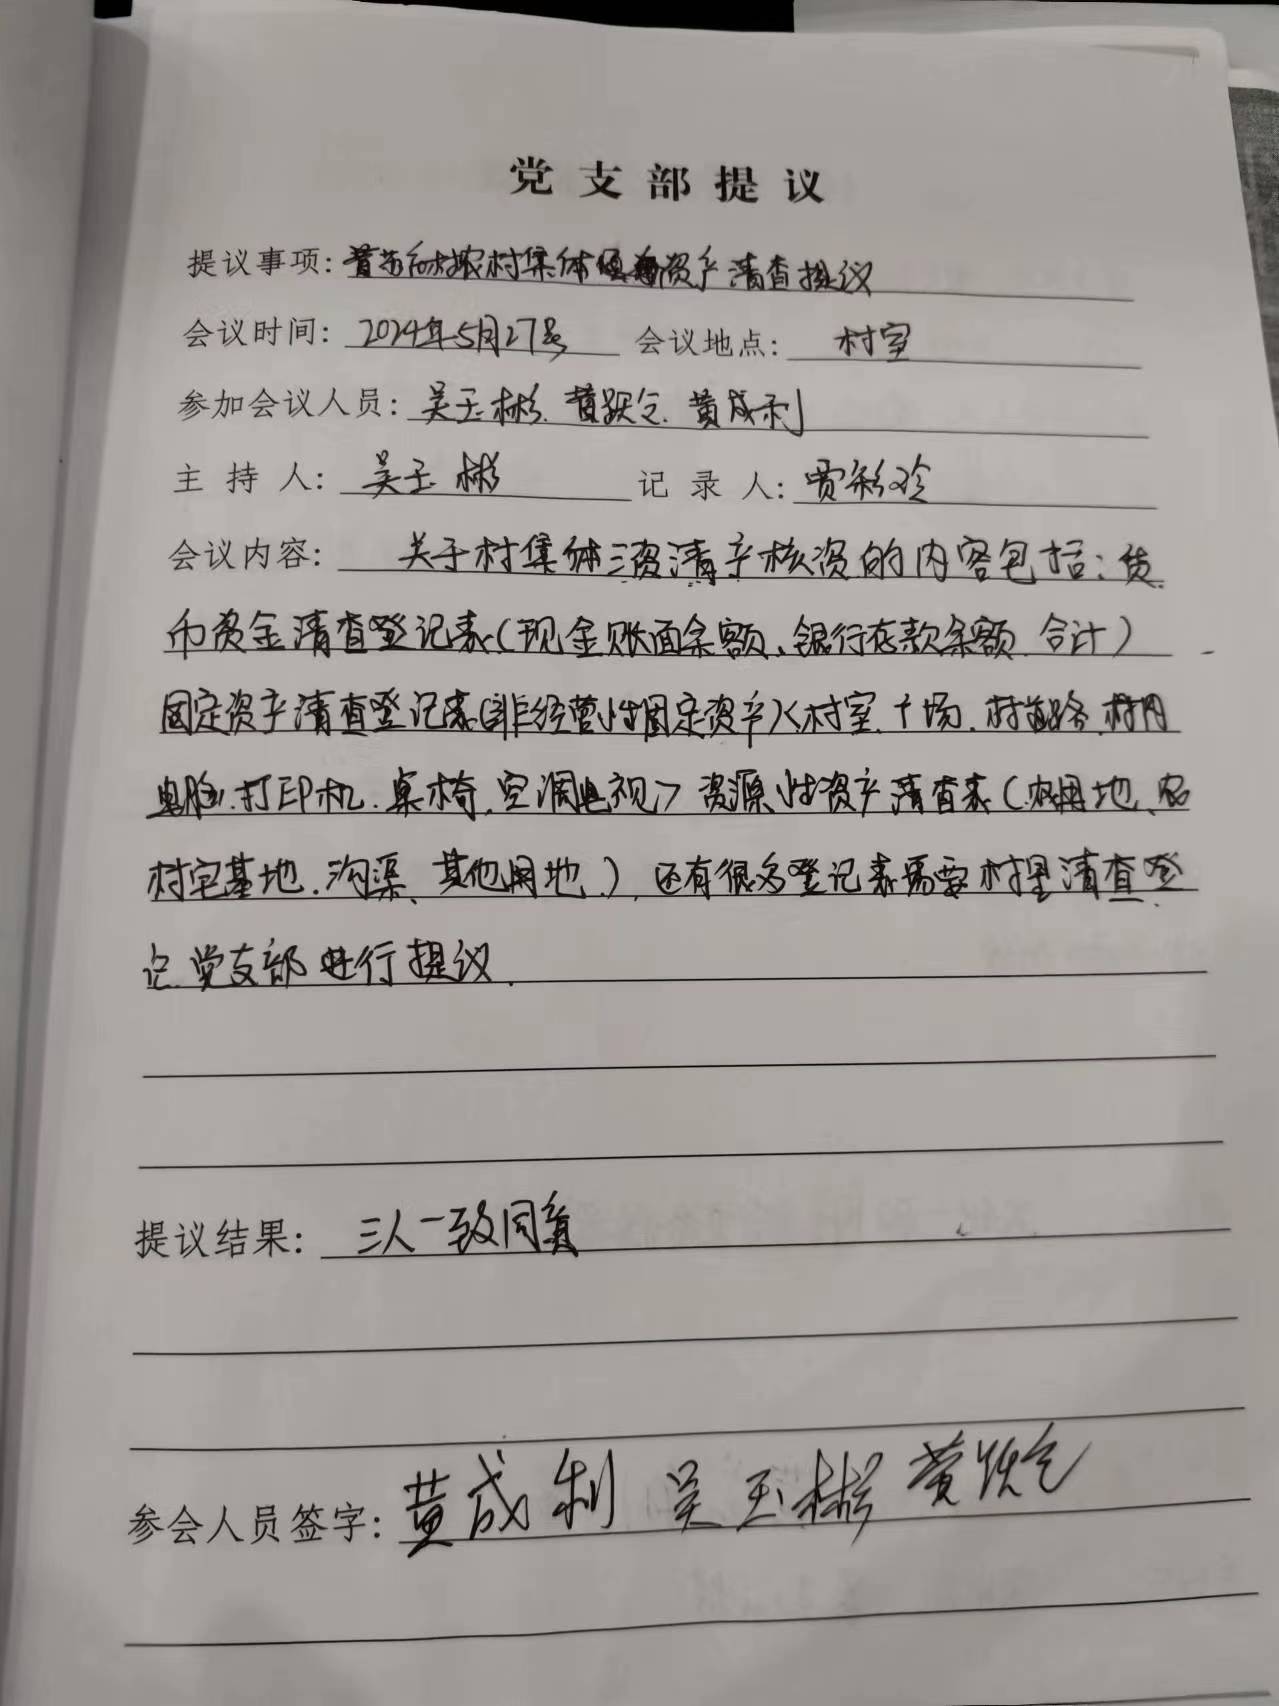 党支部提议
提议事项: 农村集体资产清查提议
会议时间: 2024年5月27号 会议地点: 村室
参加会议人员: 吴玉彬. 黄跃仓. 黄成利
主持人: 吴玉彬 记录人: 贾彩玲
会议内容: 关于村集体三资清产核资的内容包括: 货
币资金清查登记表(现金账面余额、银行存款余额. 合计)
固定资产清查登记表(非经营性固定资产)<村室. 广场. 村道路. 村内
电脑. 打印机. 桌椅. 空调电视> 资源性资产清查表(农用地、农
村宅基地. 沟渠、其他用地.), 还有很多登记表需要村里清查登
记. 党支部进行提议.
提议结果: 三人一致同意
参会人员签字: 黄成利 吴玉彬 黄跃仓